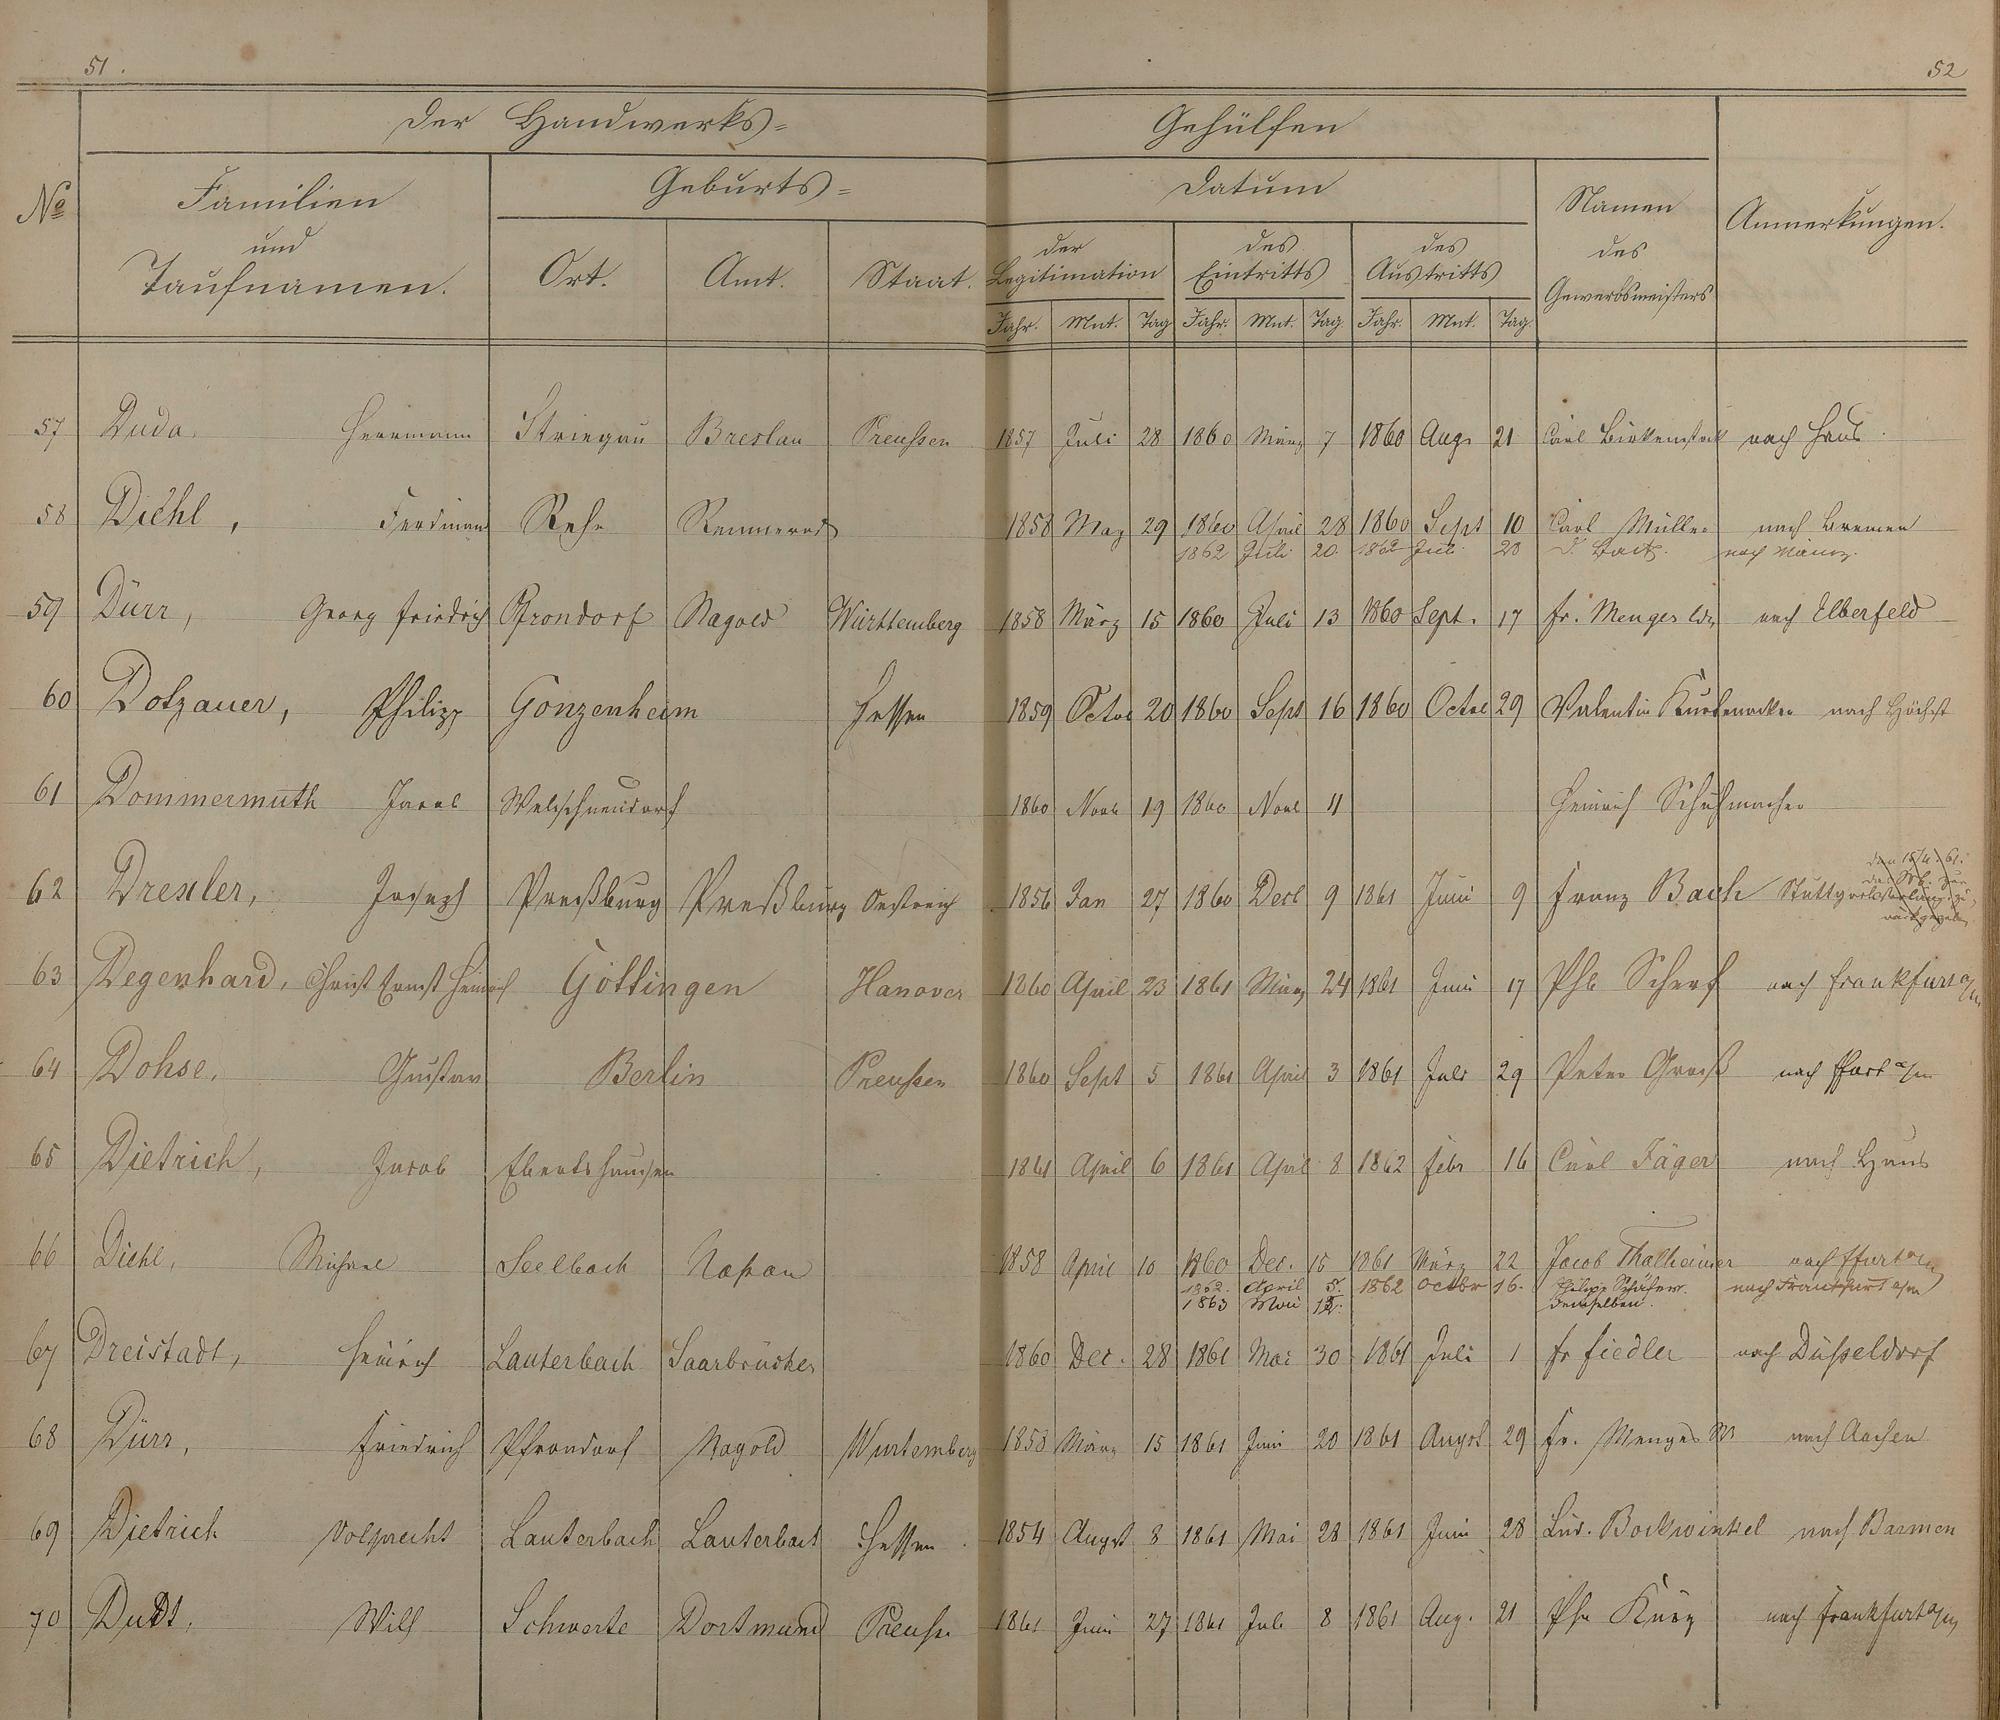 51.
52
Der Handwerks= Gehülfen
№ Familien und Taufnamen. Geburts= Datum Namen des Gewerbsmeisters Anmerkungen.
Ort. Amt. Staat. der Legitimation des Eintritts des Austritts
Jahr. Mnt. Tag Jahr. Mnt. Tag. Jahr. Mnt. Tag.
57 Duda, Herrmann Striegau Breslau Preußen 1857 Juli 28 1860 März 7 1860 Aug. 21 Carl Birkenstock nach Haus.
58 Diehl, Ferdinand Rehe Rennerod 1858 May 29 1860 April 28 1860 Sept 10 Carl Müller nach Bremen
1862 Juli 20. 1862 Juli 28 nach Mainz.
59 Dürr, Georg Friedrich Pfrondorf Nagold Württemberg 1858 März 15 1860 Juli 13 1860 Sept. 17 Fr. Menges nach Elberfeld
60 Dotzauer, Philipp Gonzenheim Hessen 1859 Octbr 20 1860 Sept 16 1860 Octbr 29 Valentin nach Höchst
61 Dommermuth Jacob Welschneudorf 1860 Novb 19 1860 Novb 11 Heinrich Schuhmacher
62 Drexler, Joseph Preßburg Preßburg Oestreich 1856 Jan 27 1860 Decb 9 1861 Juni 9 Franz Bach Stuttgart
63 Degenhard, Christ Ernst Heinrich Göttingen Hanover 1860 April 23 1861 März 24 1861 Juni 17 Phl Scherf nach Frankfurt a/m
64 Dohse, Gustav Berlin Preußen 1860 Sept 5 1861 April 3 1861 Juli 29 Peter Groß nach Ffart a/m
65 Dietrich, Jacob Ebertshausen 1861 April 6 1861 April 8 1862 Febr 16 Carl Jäger nach Haus
66 Diehl, Michael Seelbach Naßau 1858 April 10 1860 Dec. 15 1861 März 22 Jacob Thalheimer nach Ffurt a/m
1862. April 5. 1862 Octbr 16. Philipp Schäfer. nach Frankfurt a/m
1863 Mai Demselben.
67 Dreistadt, Heinrich Lauterbach Saarbrücken 1860 Dec. 28 1861 Mai 30 1861 Juli 1 Fr Fiedler nach Düßeldorf
68 Dürr, Friedrich Pfrondorf Nagold Wurtemberg 1858 März 15 1861 Juni 20 1861 Augst 29 Fr. Menges W nach Aachen
69 Dietrich Volprecht Lauterbach Lauterbach Hessen 1854 Augst 8 1861 Mai 28 1861 Juni 28 Lud. Bockwinkel nach Barmen
70 Dudt, Wilh Schwerte Dortmund Preuße 1861 Juni 27 1861 Juli 8 1861 Aug. 21 Phn Kürz nach Frankfurt a/m